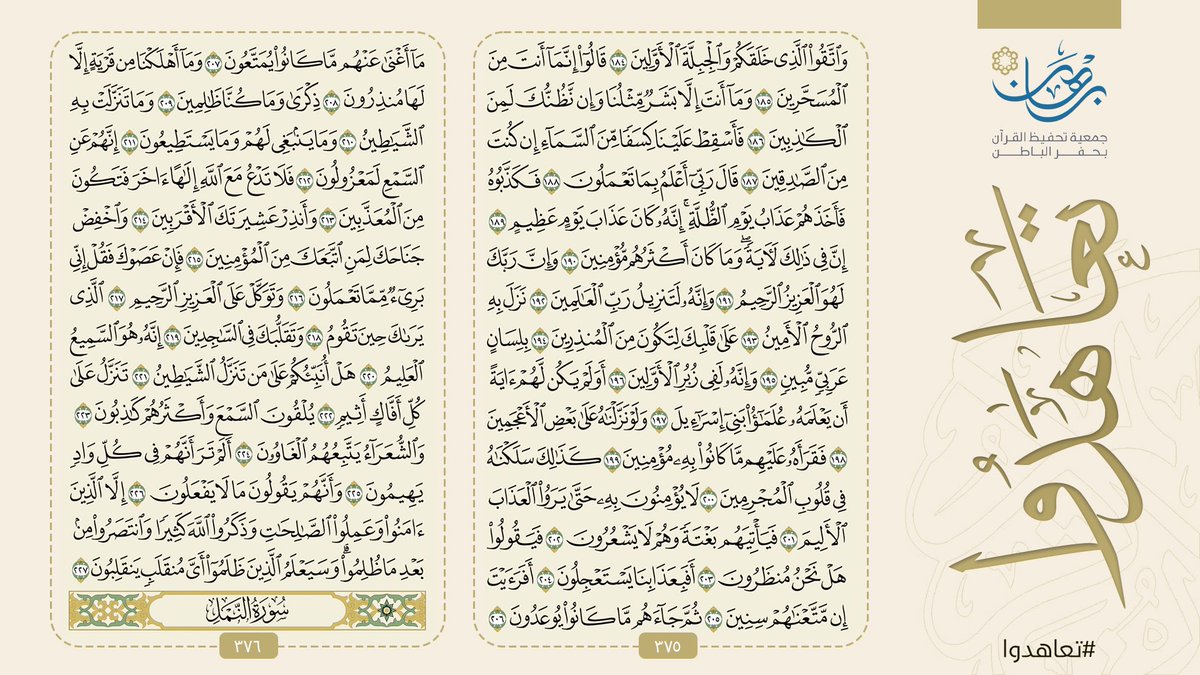 وَٱتَّقُوا۟ ٱلَّذِى خَلَقَكُمْ وَٱلْجِبِلَّةَ ٱلْأَوَّلِينَ ١٨٤ قَالُوٓا۟ إِنَّمَآ أَنتَ مِنَ
ٱلْمُسَحَّرِينَ ١٨٥ وَمَآ أَنتَ إِلَّا بَشَرٌ مِّثْلُنَا وَإِن نَّظُنُّكَ لَمِنَ
ٱلْكَـٰذِبِينَ ١٨٦ فَأَسْقِطْ عَلَيْنَا كِسَفًا مِّنَ ٱلسَّمَآءِ إِن كُنتَ
مِنَ ٱلصَّـٰدِقِينَ ١٨٧ قَالَ رَبِّىٓ أَعْلَمُ بِمَا تَعْمَلُونَ ١٨٨ فَكَذَّبُوهُ
فَأَخَذَهُمْ عَذَابُ يَوْمِ ٱلظُّلَّةِ ۚ إِنَّهُۥ كَانَ عَذَابَ يَوْمٍ عَظِيمٍ ١٨٩
إِنَّ فِى ذَٰلِكَ لَـَٔايَةً ۖ وَمَا كَانَ أَكْثَرُهُم مُّؤْمِنِينَ ١٩٠ وَإِنَّ رَبَّكَ
لَهُوَ ٱلْعَزِيزُ ٱلرَّحِيمُ ١٩١ وَإِنَّهُۥ لَتَنزِيلُ رَبِّ ٱلْعَـٰلَمِينَ ١٩٢ نَزَلَ بِهِ
ٱلرُّوحُ ٱلْأَمِينُ ١٩٣ عَلَىٰ قَلْبِكَ لِتَكُونَ مِنَ ٱلْمُنذِرِينَ ١٩٤ بِلِسَانٍ
عَرَبِىٍّ مُّبِينٍ ١٩٥ وَإِنَّهُۥ لَفِى زُبُرِ ٱلْأَوَّلِينَ ١٩٦ أَوَلَمْ يَكُن لَّهُمْ ءَايَةً
أَن يَعْلَمَهُۥ عُلَمَـٰٓؤُا۟ بَنِىٓ إِسْرَٰٓءِيلَ ١٩٧ وَلَوْ نَزَّلْنَـٰهُ عَلَىٰ بَعْضِ ٱلْأَعْجَمِينَ
١٩٨ فَقَرَأَهُۥ عَلَيْهِم مَّا كَانُوا۟ بِهِۦ مُؤْمِنِينَ ١٩٩ كَذَٰلِكَ سَلَكْنَـٰهُ
فِى قُلُوبِ ٱلْمُجْرِمِينَ ٢٠٠ لَا يُؤْمِنُونَ بِهِۦ حَتَّىٰ يَرَوُا۟ ٱلْعَذَابَ
ٱلْأَلِيمَ ٢٠١ فَيَأْتِيَهُم بَغْتَةً وَهُمْ لَا يَشْعُرُونَ ٢٠٢ فَيَقُولُوا۟
هَلْ نَحْنُ مُنظَرُونَ ٢٠٣ أَفَبِعَذَابِنَا يَسْتَعْجِلُونَ ٢٠٤ أَفَرَءَيْتَ
إِن مَّتَّعْنَـٰهُمْ سِنِينَ ٢٠٥ ثُمَّ جَآءَهُم مَّا كَانُوا۟ يُوعَدُونَ ٢٠٦
٣٧٥
مَآ أَغْنَىٰ عَنْهُم مَّا كَانُوا۟ يُمَتَّعُونَ ٢٠٧ وَمَآ أَهْلَكْنَا مِن قَرْيَةٍ إِلَّا
لَهَا مُنذِرُونَ ٢٠٨ ذِكْرَىٰ وَمَا كُنَّا ظَـٰلِمِينَ ٢٠٩ وَمَا تَنَزَّلَتْ بِهِ
ٱلشَّيَـٰطِينُ ٢١٠ وَمَا يَنۢبَغِى لَهُمْ وَمَا يَسْتَطِيعُونَ ٢١١ إِنَّهُمْ عَنِ
ٱلسَّمْعِ لَمَعْزُولُونَ ٢١٢ فَلَا تَدْعُ مَعَ ٱللَّهِ إِلَـٰهًا ءَاخَرَ فَتَكُونَ
مِنَ ٱلْمُعَذَّبِينَ ٢١٣ وَأَنذِرْ عَشِيرَتَكَ ٱلْأَقْرَبِينَ ٢١٤ وَٱخْفِضْ
جَنَاحَكَ لِمَنِ ٱتَّبَعَكَ مِنَ ٱلْمُؤْمِنِينَ ٢١٥ فَإِنْ عَصَوْكَ فَقُلْ إِنِّى
بَرِىٓءٌ مِّمَّا تَعْمَلُونَ ٢١٦ وَتَوَكَّلْ عَلَى ٱلْعَزِيزِ ٱلرَّحِيمِ ٢١٧ ٱلَّذِى
يَرَىٰكَ حِينَ تَقُومُ ٢١٨ وَتَقَلُّبَكَ فِى ٱلسَّـٰجِدِينَ ٢١٩ إِنَّهُۥ هُوَ ٱلسَّمِيعُ
ٱلْعَلِيمُ ٢٢٠ هَلْ أُنَبِّئُكُمْ عَلَىٰ مَن تَنَزَّلُ ٱلشَّيَـٰطِينُ ٢٢١ تَنَزَّلُ عَلَىٰ
كُلِّ أَفَّاكٍ أَثِيمٍ ٢٢٢ يُلْقُونَ ٱلسَّمْعَ وَأَكْثَرُهُمْ كَـٰذِبُونَ ٢٢٣
وَٱلشُّعَرَآءُ يَتَّبِعُهُمُ ٱلْغَاوُۥنَ ٢٢٤ أَلَمْ تَرَ أَنَّهُمْ فِى كُلِّ وَادٍ
يَهِيمُونَ ٢٢٥ وَأَنَّهُمْ يَقُولُونَ مَا لَا يَفْعَلُونَ ٢٢٦ إِلَّا ٱلَّذِينَ
ءَامَنُوا۟ وَعَمِلُوا۟ ٱلصَّـٰلِحَـٰتِ وَذَكَرُوا۟ ٱللَّهَ كَثِيرًا وَٱنتَصَرُوا۟ مِنۢ
بَعْدِ مَا ظُلِمُوا۟ ۗ وَسَيَعْلَمُ ٱلَّذِينَ ظَلَمُوٓا۟ أَىَّ مُنقَلَبٍ يَنقَلِبُونَ ٢٢٧
سُورَةُ ٱلنَّمْلِ
٣٧٦
برهان
جمعية تحفيظ القرآن
بحفر الباطن
تعاهدوا
#تعاهدوا